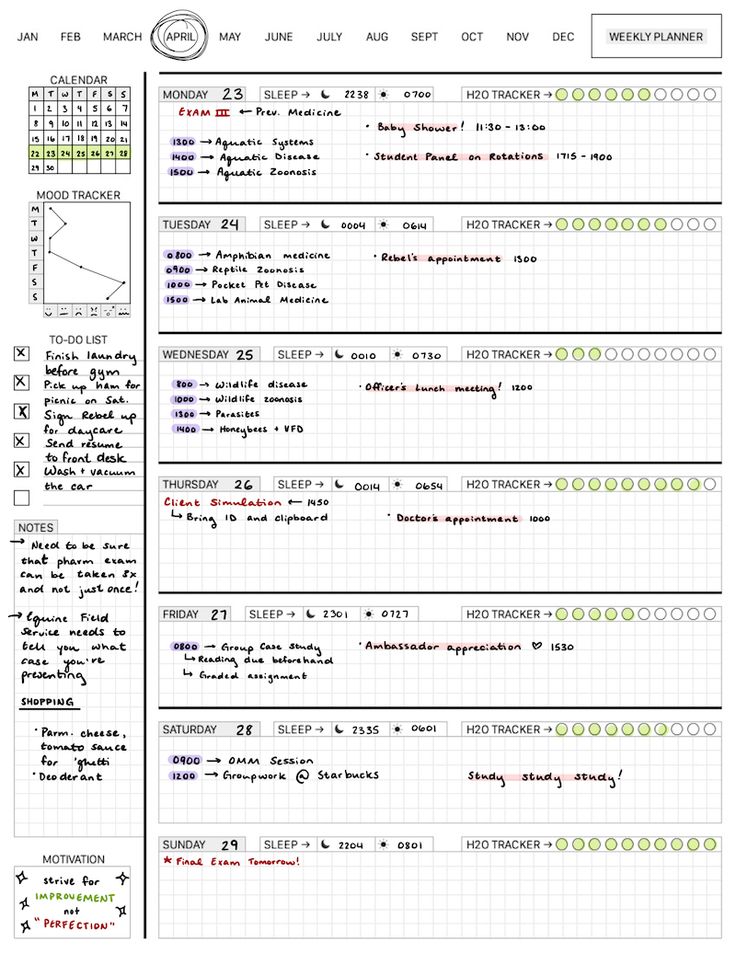 JAN FEB MARCH APRIL MAY JUNE JULY AUG SEPT OCT NOV DEC WEEKLY PLANNER
CALENDAR
M T W T F S S
1 2 3 4 5 6 7
8 9 10 11 12 13 14
15 16 17 18 19 20 21
22 23 24 25 26 27 28
29 30
MOOD TRACKER
M
T
W
T
F
S
S
TO-DO LIST
X Finish laundry
before gym
X Pick up ham for
picnic on Sat.
X Sign Rebel up
for daycare
X Send resume
to front desk
X Wash + vacuum
the car
NOTES
→ Need to be sure
that pharm exam
can be taken 3x
and not just once!
→ Equine Field
Service needs to
tell you what
case you're
presenting
SHOPPING
• Parm. cheese,
tomato sauce
for 'ghetti
• Deodorant
MOTIVATION
strive for
IMPROVEMENT
not
"PERFECTION"
MONDAY 23 SLEEP → 2238 0700 H2O TRACKER →
EXAM III ← Prev. Medicine
• Baby Shower! 11:30 - 13:00
1300 → Aquatic Systems
1400 → Aquatic Disease • Student Panel on Rotations 1715 - 1900
1500 → Aquatic Zoonosis
TUESDAY 24 SLEEP → 0004 0614 H2O TRACKER →
0800 → Amphibian medicine • Rebel's appointment 1300
0900 → Reptile Zoonosis
1000 → Pocket Pet Disease
1500 → Lab Animal Medicine
WEDNESDAY 25 SLEEP → 0010 0730 H2O TRACKER →
800 → Wildlife disease • Officer's Lunch meeting! 1200
1000 → Wildlife zoonosis
1300 → Parasites
1400 → Honeybees + VFD
THURSDAY 26 SLEEP → 0014 0654 H2O TRACKER →
Client Simulation ← 1450
↳ Bring ID and clipboard • Doctor's appointment 1000
FRIDAY 27 SLEEP → 2301 0727 H2O TRACKER →
0800 → Group Case Study • Ambassador appreciation ♡ 1530
↳ Reading due beforehand
↳ Graded assignment
SATURDAY 28 SLEEP → 2335 0601 H2O TRACKER →
0900 → OMM Session
1200 → Groupwork @ Starbucks Study study study!
SUNDAY 29 SLEEP → 2204 0801 H2O TRACKER →
* Final Exam Tomorrow!